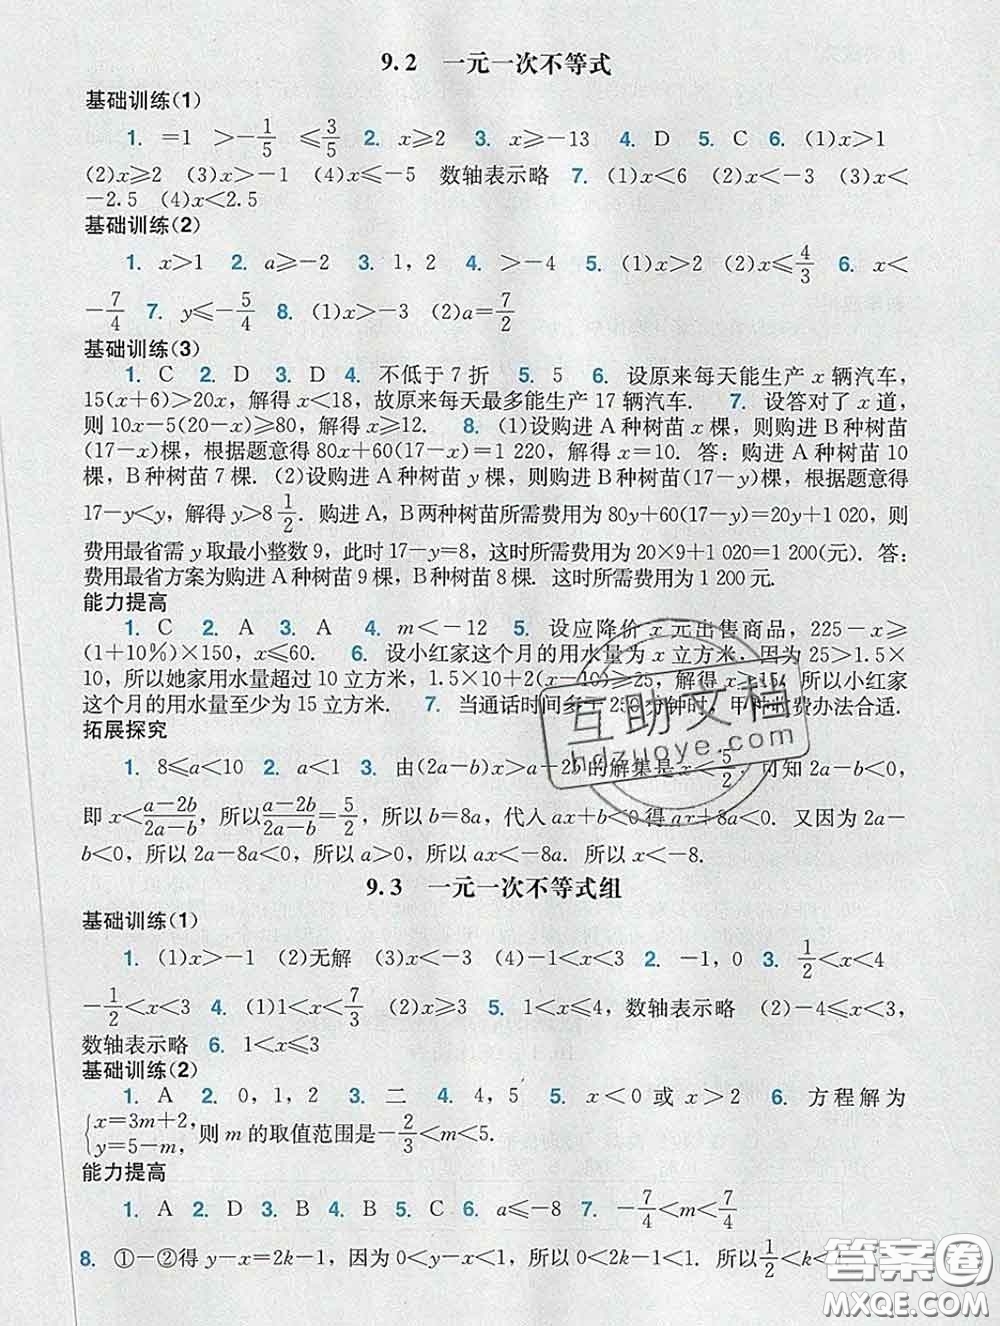 9.2 一元一次不等式
基础训练(1)
1. =1 >-1/5 ≤3/5 2. x≥2 3. x≥-13 4. D 5. C 6. (1)x>1
(2)x≥2 (3)x>-1 (4)x≤-5 数轴表示略 7. (1)x<6 (2)x<-3 (3)x<
-2.5 (4)x<2.5
基础训练(2)
1. x>1 2. a≥-2 3. 1,2 4. >-4 5. (1)x>2 (2)x≤4/3 6. x<
-7/4 7. y≤-5/4 8. (1)x>-3 (2)a=7/2
基础训练(3)
1. C 2. D 3. D 4. 不低于7折 5. 5 6. 设原来每天能生产x辆汽车,
15(x+6)>20x,解得x<18,故原来每天最多能生产17辆汽车. 7. 设答对了x道,
则10x-5(20-x)≥80,解得x≥12. 8. (1)设购进A种树苗x棵,则购进B种树苗
(17-x)棵,根据题意得80x+60(17-x)=1 220,解得x=10. 答:购进A种树苗10
棵,B种树苗7棵. (2)设购进A种树苗y棵,则购进B种树苗(17-y)棵,根据题意得
17-y<y,解得y>8 1/2. 购进A,B两种树苗所需费用为80y+60(17-y)=20y+1 020,则
费用最省需y取最小整数9,此时17-y=8,这时所需费用为20×9+1 020=1 200(元). 答:
费用最省方案为购进A种树苗9棵,B种树苗8棵. 这时所需费用为1 200元.
能力提高
1. C 2. A 3. A 4. m<-12 5. 设应降价x元出售商品,225-x≥
(1+10%)×150,x≤60. 6. 设小红家这个月的用水量为x立方米,因为25>1.5×
10,所以她家用水量超过10立方米. 1.5×10+2(x-10)≥25,解得x≥15,所以小红家
的用水量至少为15立方米. 7. 当通话时间多于250分钟时,甲种计费办法合适.
拓展探究
1. 8≤a<10 2. a<1 3. 由(2a-b)x>a-2b的解集是x<5/2,可知2a-b<0,
即x<(a-2b)/(2a-b),所以(a-2b)/(2a-b)=5/2,所以b=8a,代入ax+b<0得ax+8a<0. 又因为2a-
b<0,所以2a-8a<0,所以a>0,所以ax<-8a. 所以x<-8.
9.3 一元一次不等式组
基础训练(1)
1. (1)x>-1 (2)无解 (3)x<-3 (4)-1<x<3 2. -1,0 3. 1/2<x<4
-1/2<x<3 4. (1)1<x<7/3 (2)x≥3 5. 1<x≤4,数轴表示略 (2)-4≤x<3,
数轴表示略 6. 1<x≤3
基础训练(2)
1. A 2. 0,1,2 3. 二 4. 4,5 5. x<0或x>2 6. 方程解为
{x=3m+2, y=5-m,则m的取值范围是-2/3<m<5.
能力提高
1. A 2. D 3. B 4. B 5. C 6. a≤-8 7. -7/4<m<7/4
8. ①-②得y-x=2k-1,因为0<y-x<1,所以0<2k-1<1. 所以1/2<k<
互助文档
hdzuoye.com
答案圈
MXQE.COM